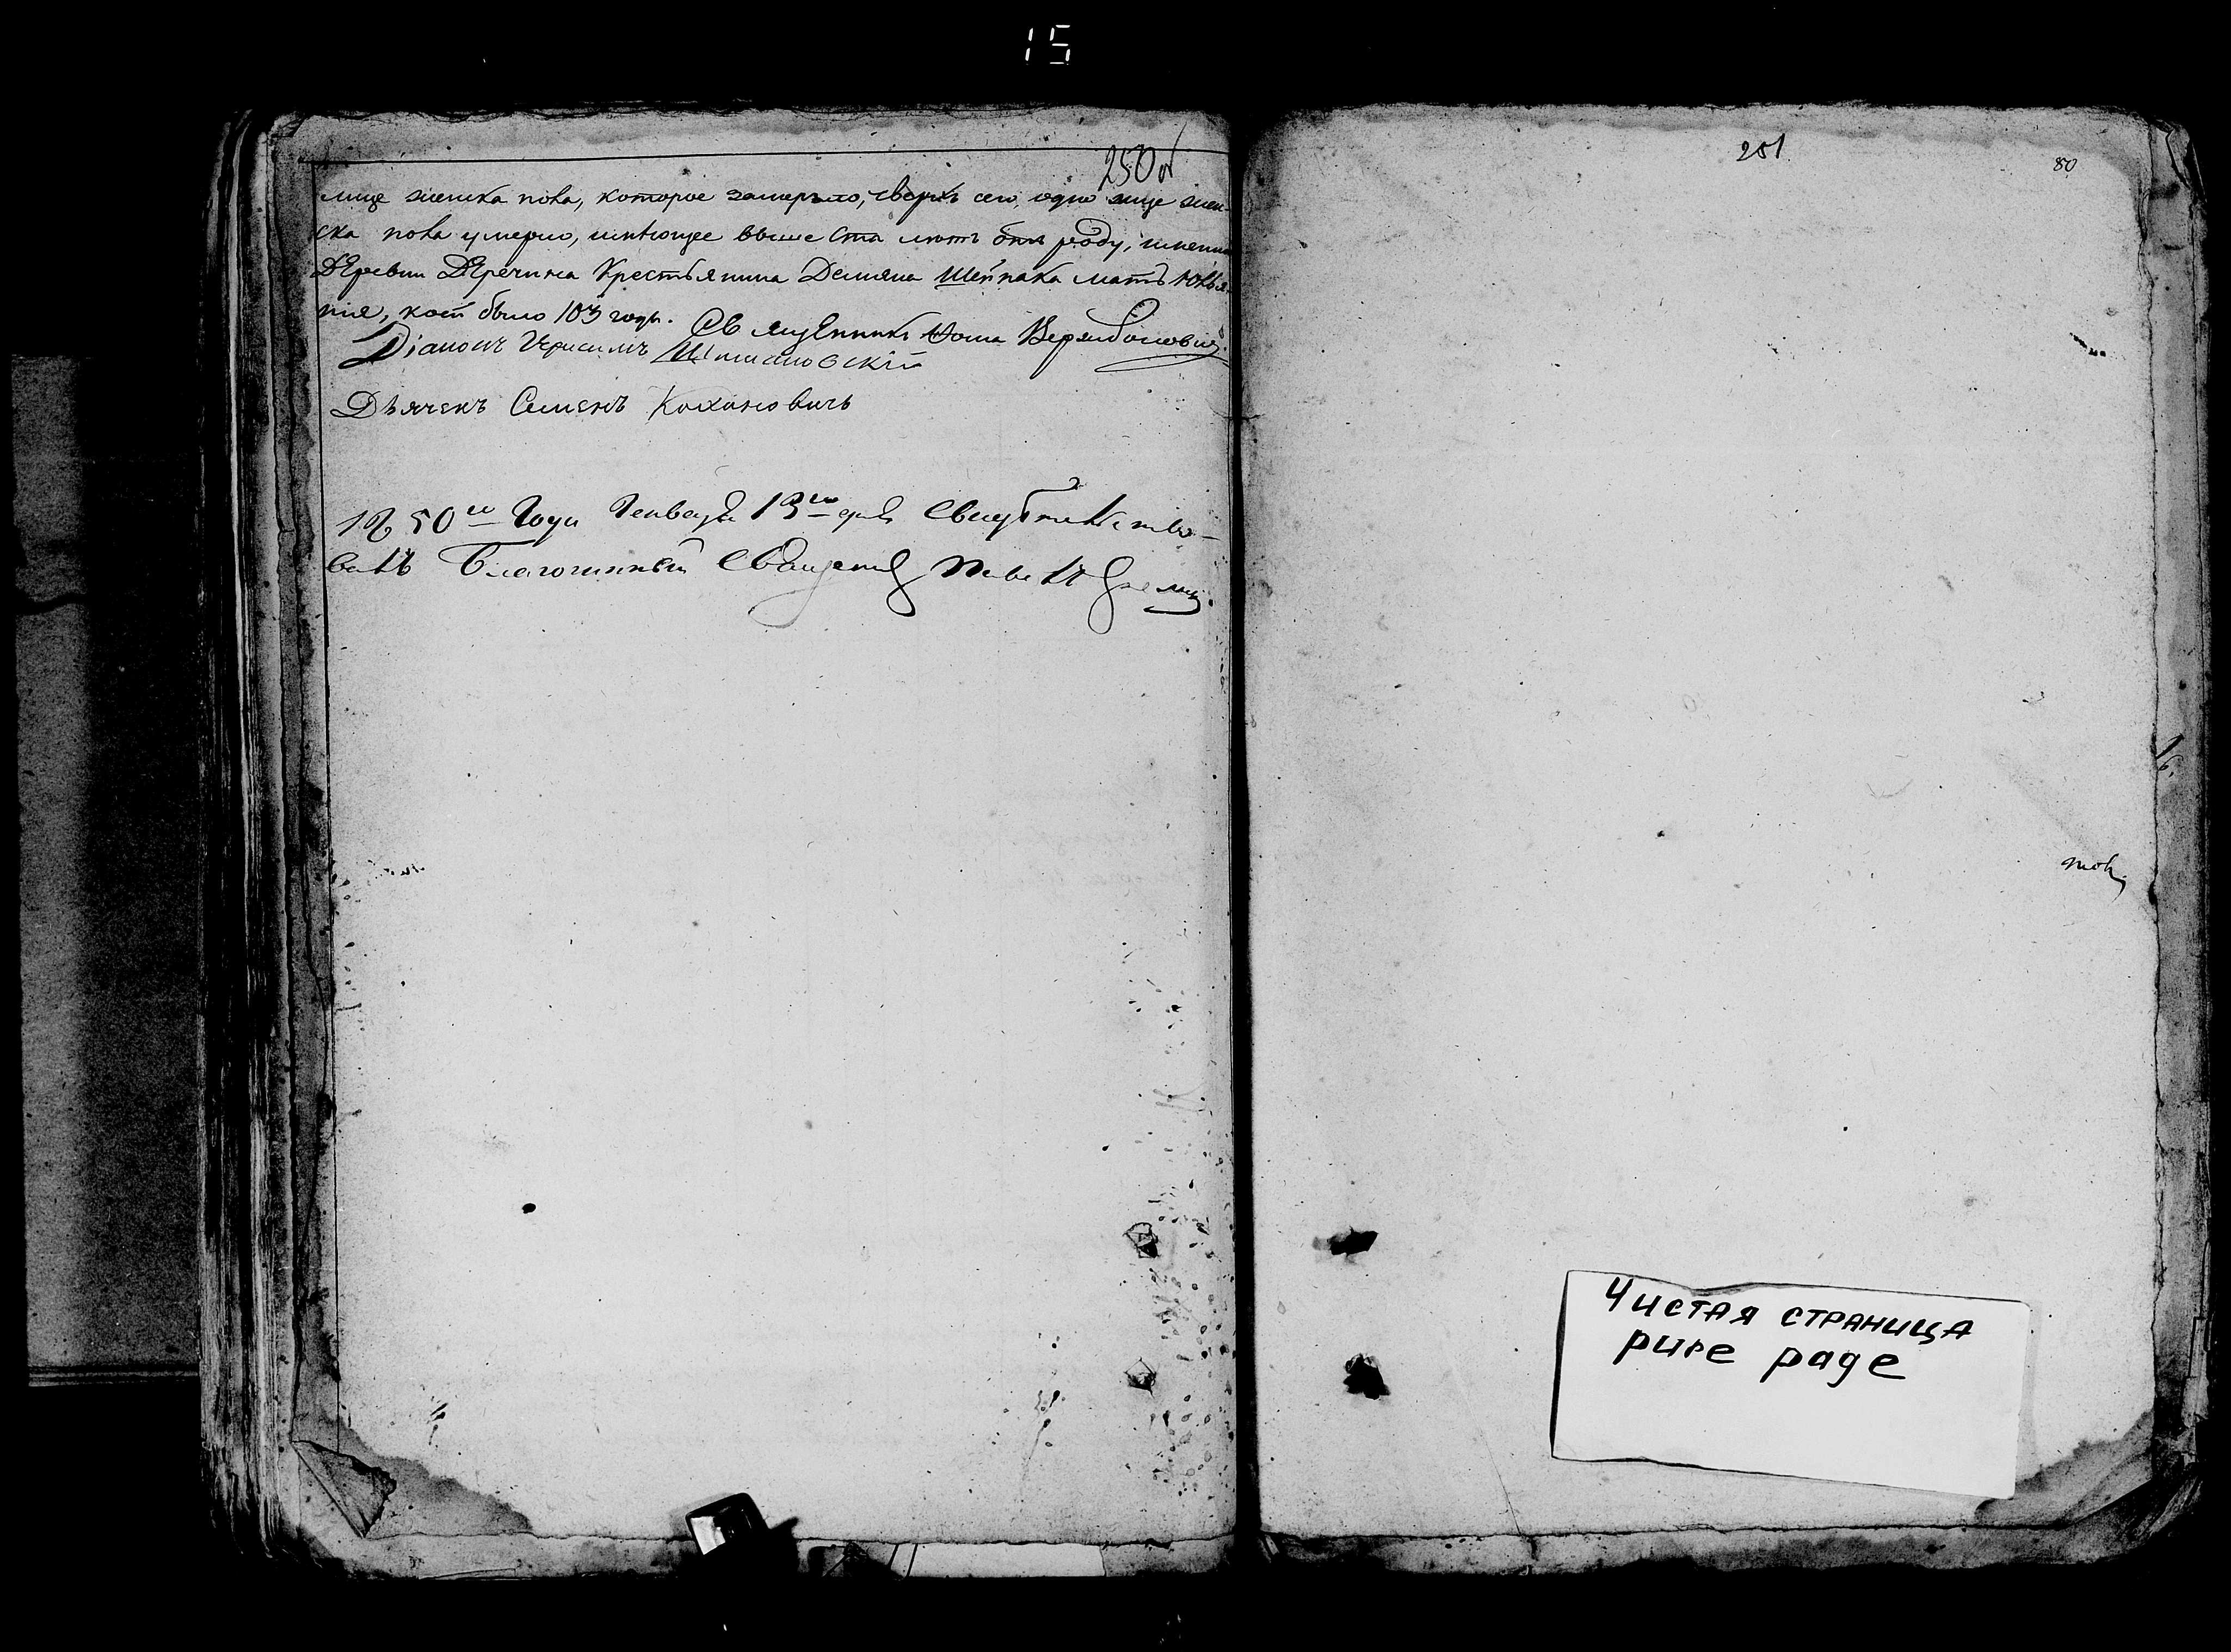 15
250об
лице женска пола, которое замерзло, сверхъ сего, одно лице жен-
ска пола умерло, имѣющее выше ста лѣтъ отъ роду, именно
Деревни Деречина Крестьянина Демяна Шепака мать
было 103 года. Священникъ Фома
Діаконъ Герасимъ
Дьячекъ Семенъ Кохановичъ
1850го Года Генваря 13го дня Свидѣтельство-
валъ Благочинный Священникъ
251
80
Чистая страница
pure page